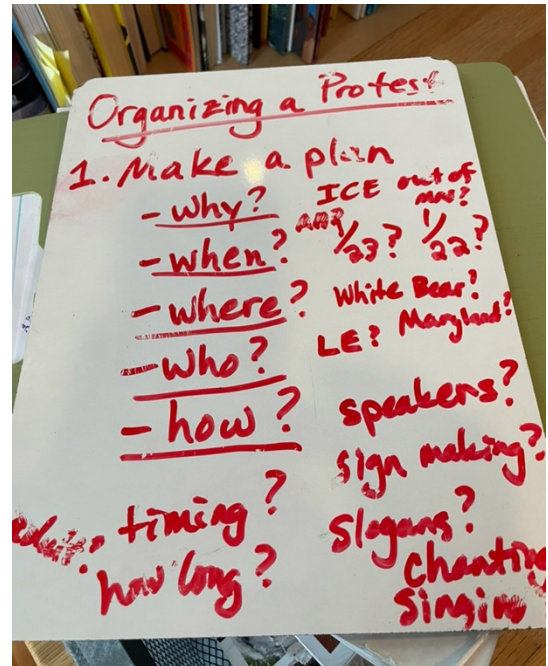 Organizing a Protest
1. Make a plan
- why?
ICE out of MN?
- when?
1/23? 1/22?
- where?
White Bear?
Maryland?
- who?
LE?
- how?
speakers?
sign making?
timing?
slogans?
how long?
chanting
singing